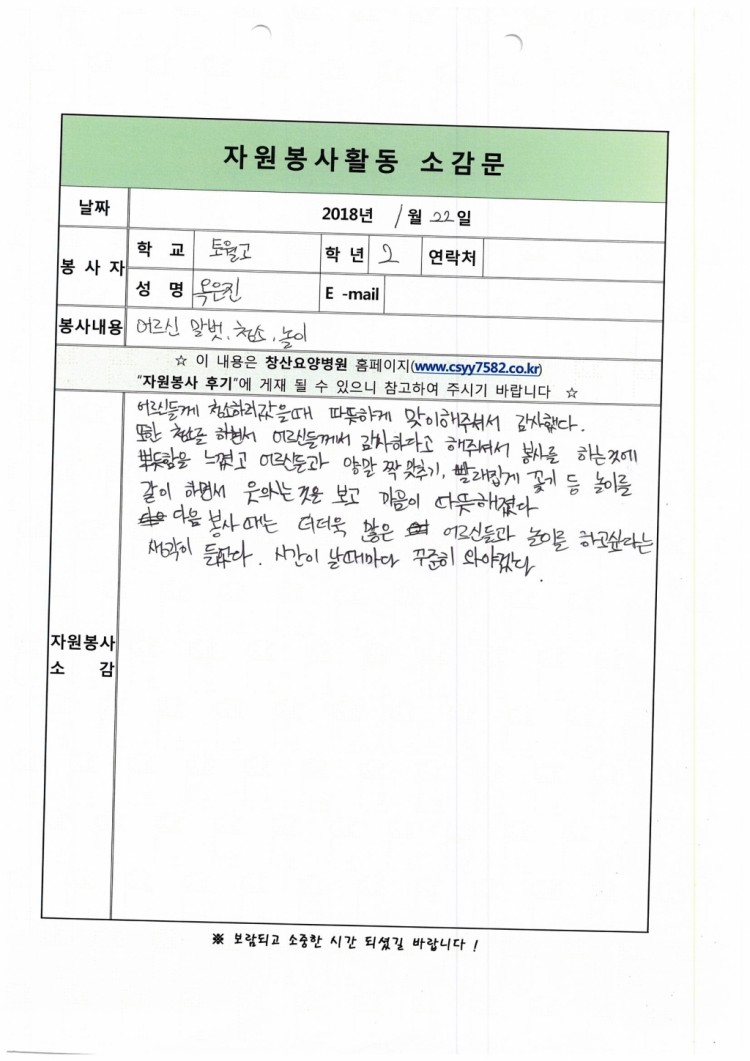 자원봉사활동 소감문
날짜 2018년 1월 22일
봉사자 학 교 토월고 학년 2 연락처
성 명 옥은진 E -mail
봉사내용 어르신 말벗, 청소, 놀이
☆ 이 내용은 창산요양병원 홈페이지(www.csyy7582.co.kr)
"자원봉사 후기"에 게재 될 수 있으니 참고하여 주시기 바랍니다 ☆
어르신들께 청소하러갔을때 따뜻하게 맞이해주셔서 감사했다.
또한 청소를 하면서 어르신들께서 감사하다고 해주셔서 봉사를 하는것에
뿌듯함을 느꼈고 어르신들과 양말 짝 맞추기, 빨래집게 꽂기 등 놀이를
같이 하면서 웃으시는 것을 보고 마음이 따뜻해졌다
다음 봉사 때는 더더욱 많은 어르신들과 놀이를 하고싶다라는
생각이 들었다. 시간이 날때마다 꾸준히 와야겠다.
자원봉사
소 감
※ 보람되고 소중한 시간 되셨길 바랍니다 !